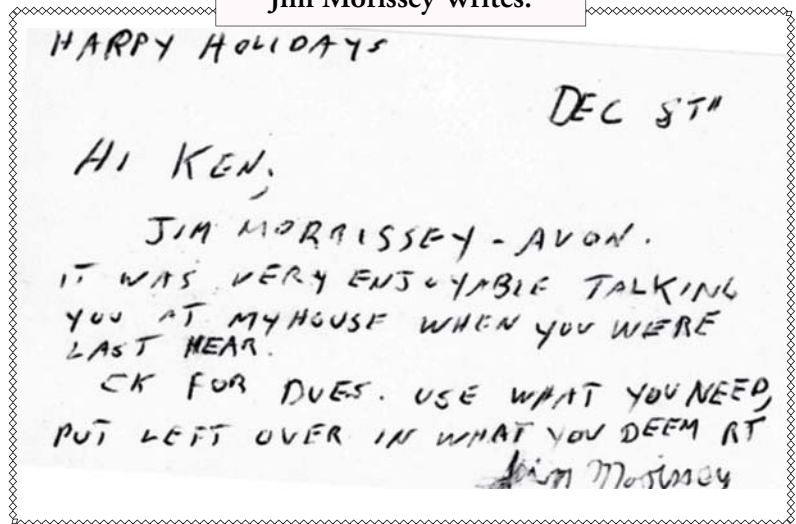 Jim Morissey writes:
HAPPY HOLIDAYS
DEC 8TH
HI KEN;
JIM MORRISSEY - AVON.
IT WAS VERY ENJOYABLE TALKING
YOU AT MY HOUSE WHEN YOU WERE
LAST HEAR.
CK FOR DUES. USE WHAT YOU NEED,
PUT LEFT OVER IN WHAT YOU DEEM RT
Jim Morissey